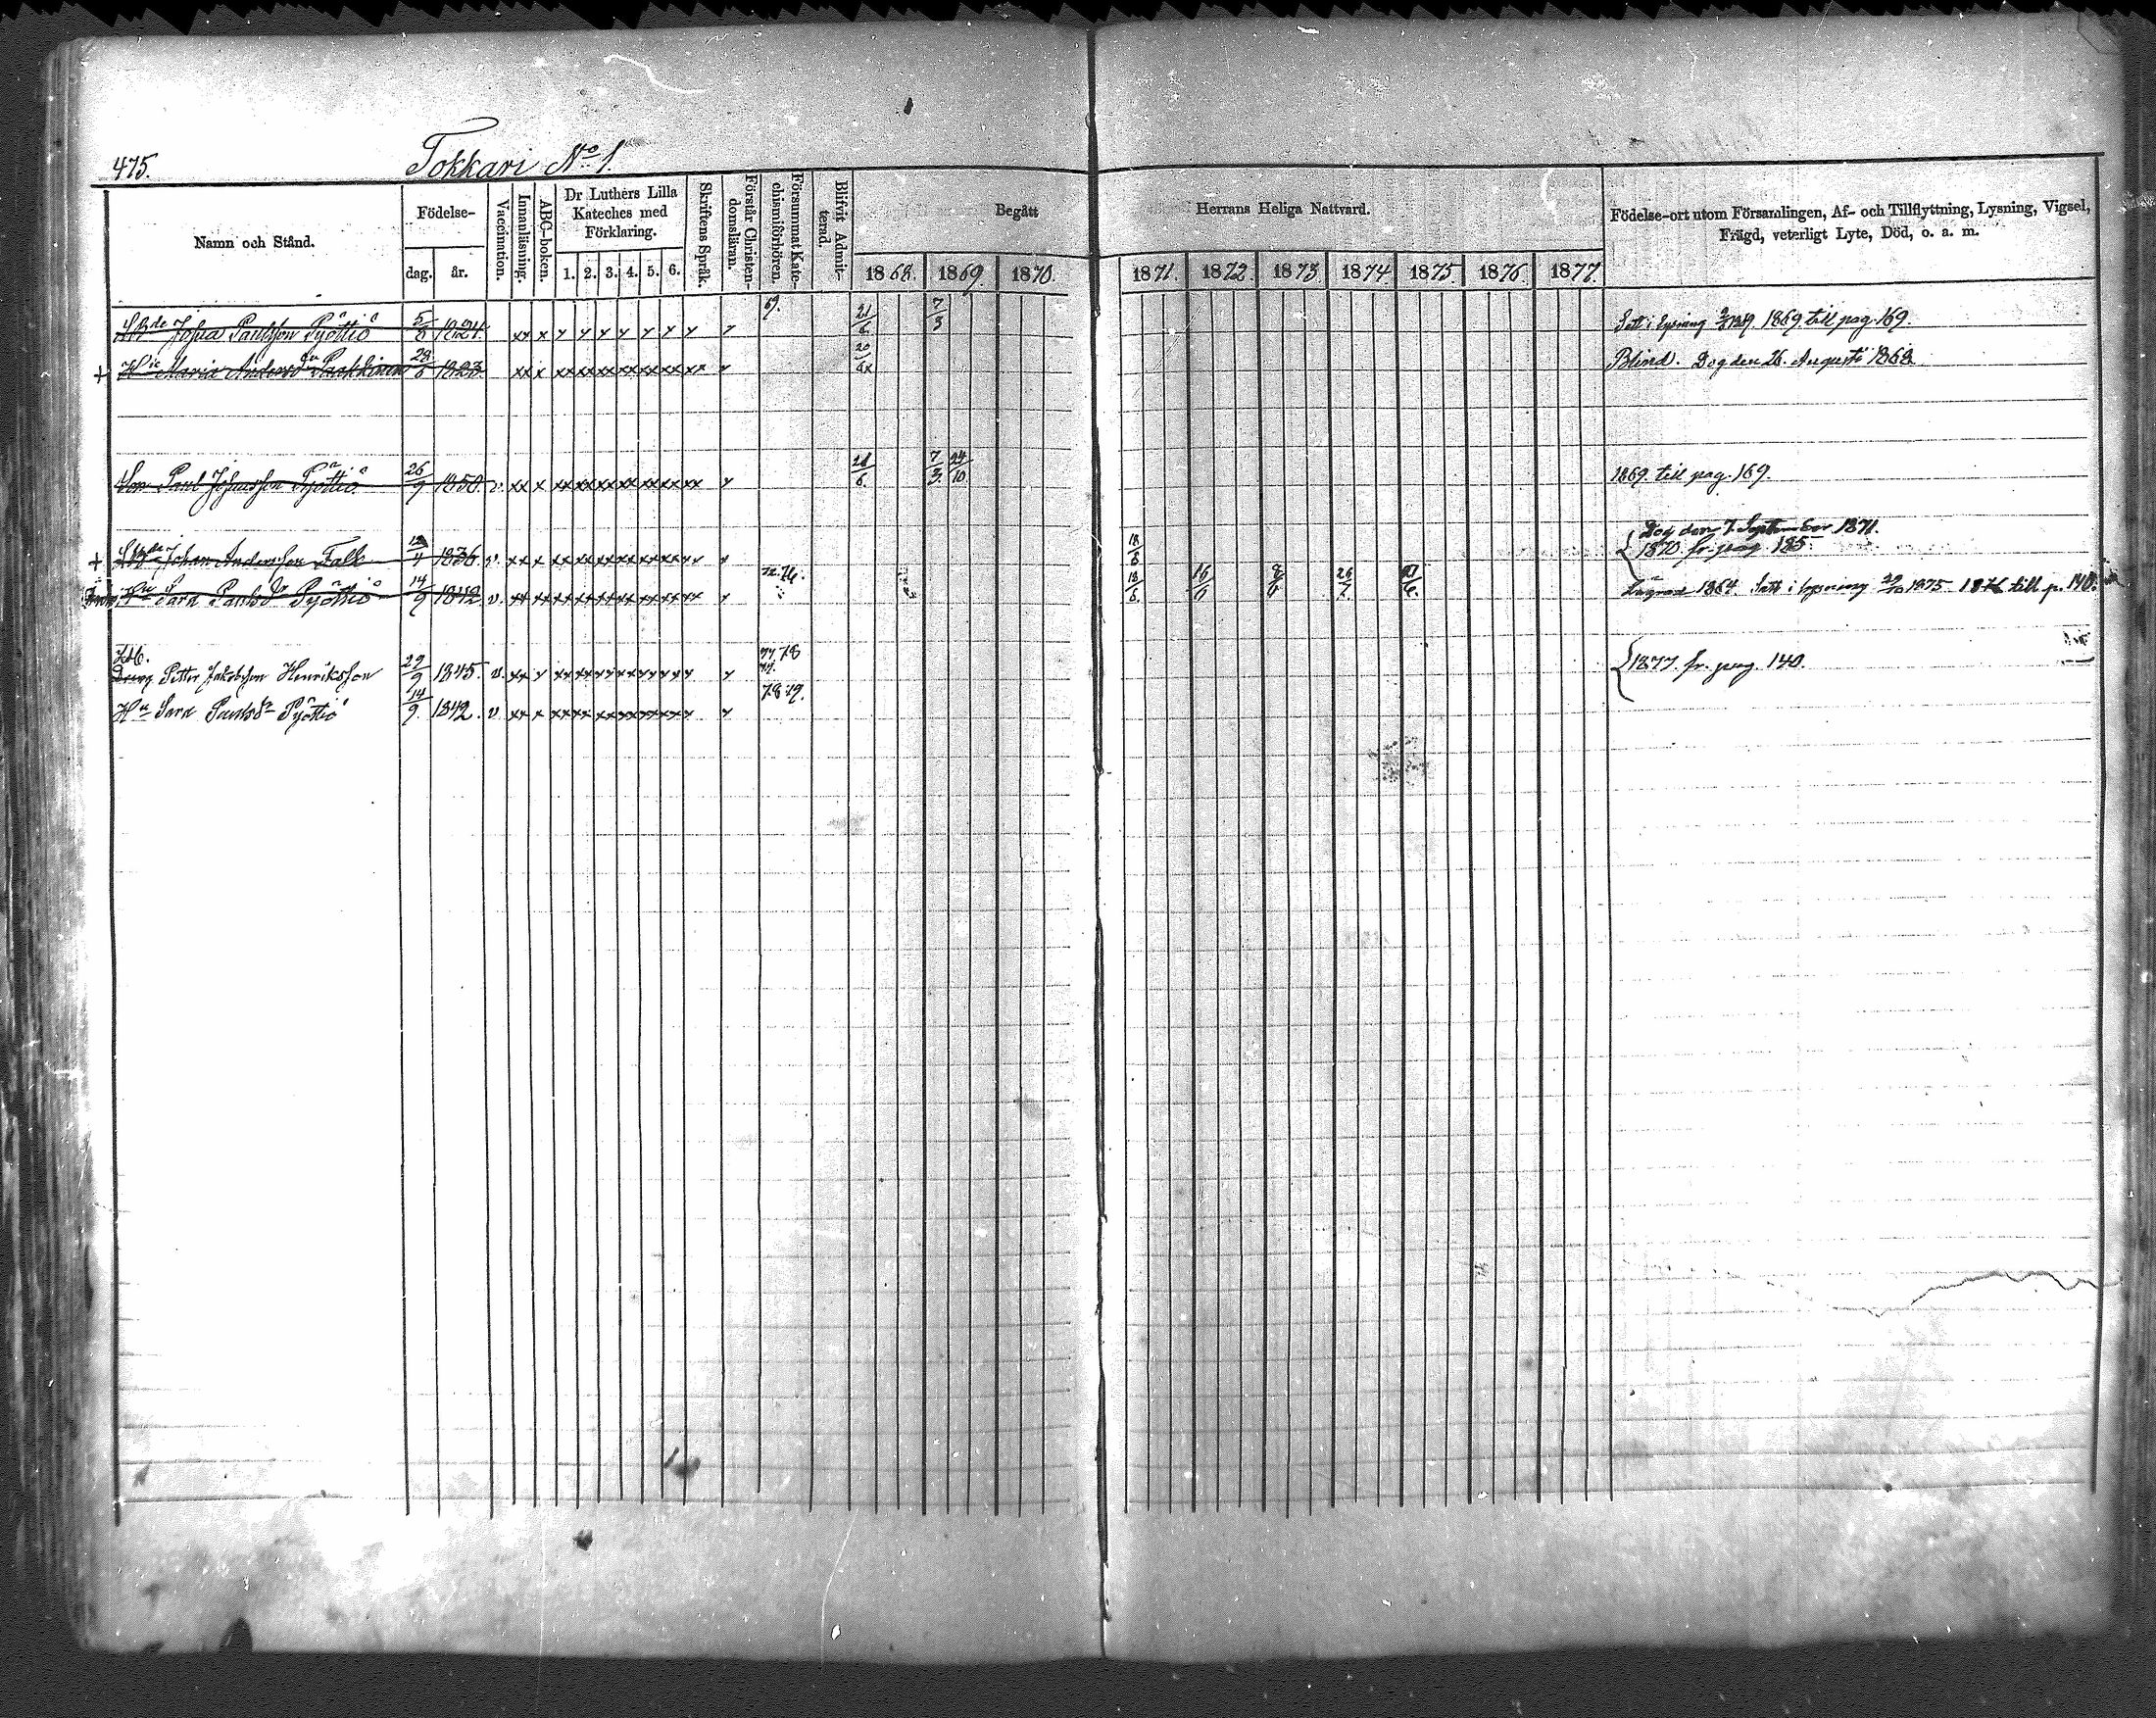 475.
Tokkari No 1.
Namn och Stånd.
Födelse-
dag.
år.
Vaccination.
Innanläsning.
ABC-boken.
Dr Luthers Lilla
Kateches med
Förklaring.
1. 2. 3. 4. 5. 6.
Skriftens Språk.
Förstår Christen-
domsläran.
Försummat Kate-
chismiförhören.
Blifvit Admit-
terad.
Begått
Herrans Heliga Nattvard.
1868. 1869. 1870.
1871. 1872. 1873. 1874. 1875. 1876. 1877.
Födelse-ort utom Församlingen, Af- och Tillflyttning, Lysning, Vigsel,
Frägd, veterligt Lyte, Död, o. a. m.
Paulsson Pyöttiö 5/8 1824. xx x y y y y y y y y 69. 21/6 7/3 Satt i lysning 1869 till pag. 169.
+ Maria Anders 1823 xx x xx xx xx xx xx xx xx y 20/6x Blind. Dog den 26 Augusti 1868
Son Paul Johansson Pyöttiö 26/9 1850. v. xx x xx xx xx xx xx xx xx y 21/6. 7/3. 24/10 1869. till pag. 169.
Dog den 7 September 1871.
+ Johan Andersson Falk 1836. v. xx x xx xx xx xx xx xx yy y 18/6 1870. fr. pag. 185
Sara Paulsdr Pyöttiö 14/9 1842 v. xx xx xx xx xx xx xx xx y 18/6. 16/6 8/6 26/7. Lägrad 1864. Satt i lysning 1875 1876 till p. 140.
Petter Jakobsson Henriksson 29/9 1845. v. xx y xx xx yy xx yy xx y y 77 78 1877. fr. pag. 140.
Hu Sara Paulsdr Pyöttiö 14/9. 1842. v xx x xx xx xx xx xx xx y y 78 79.